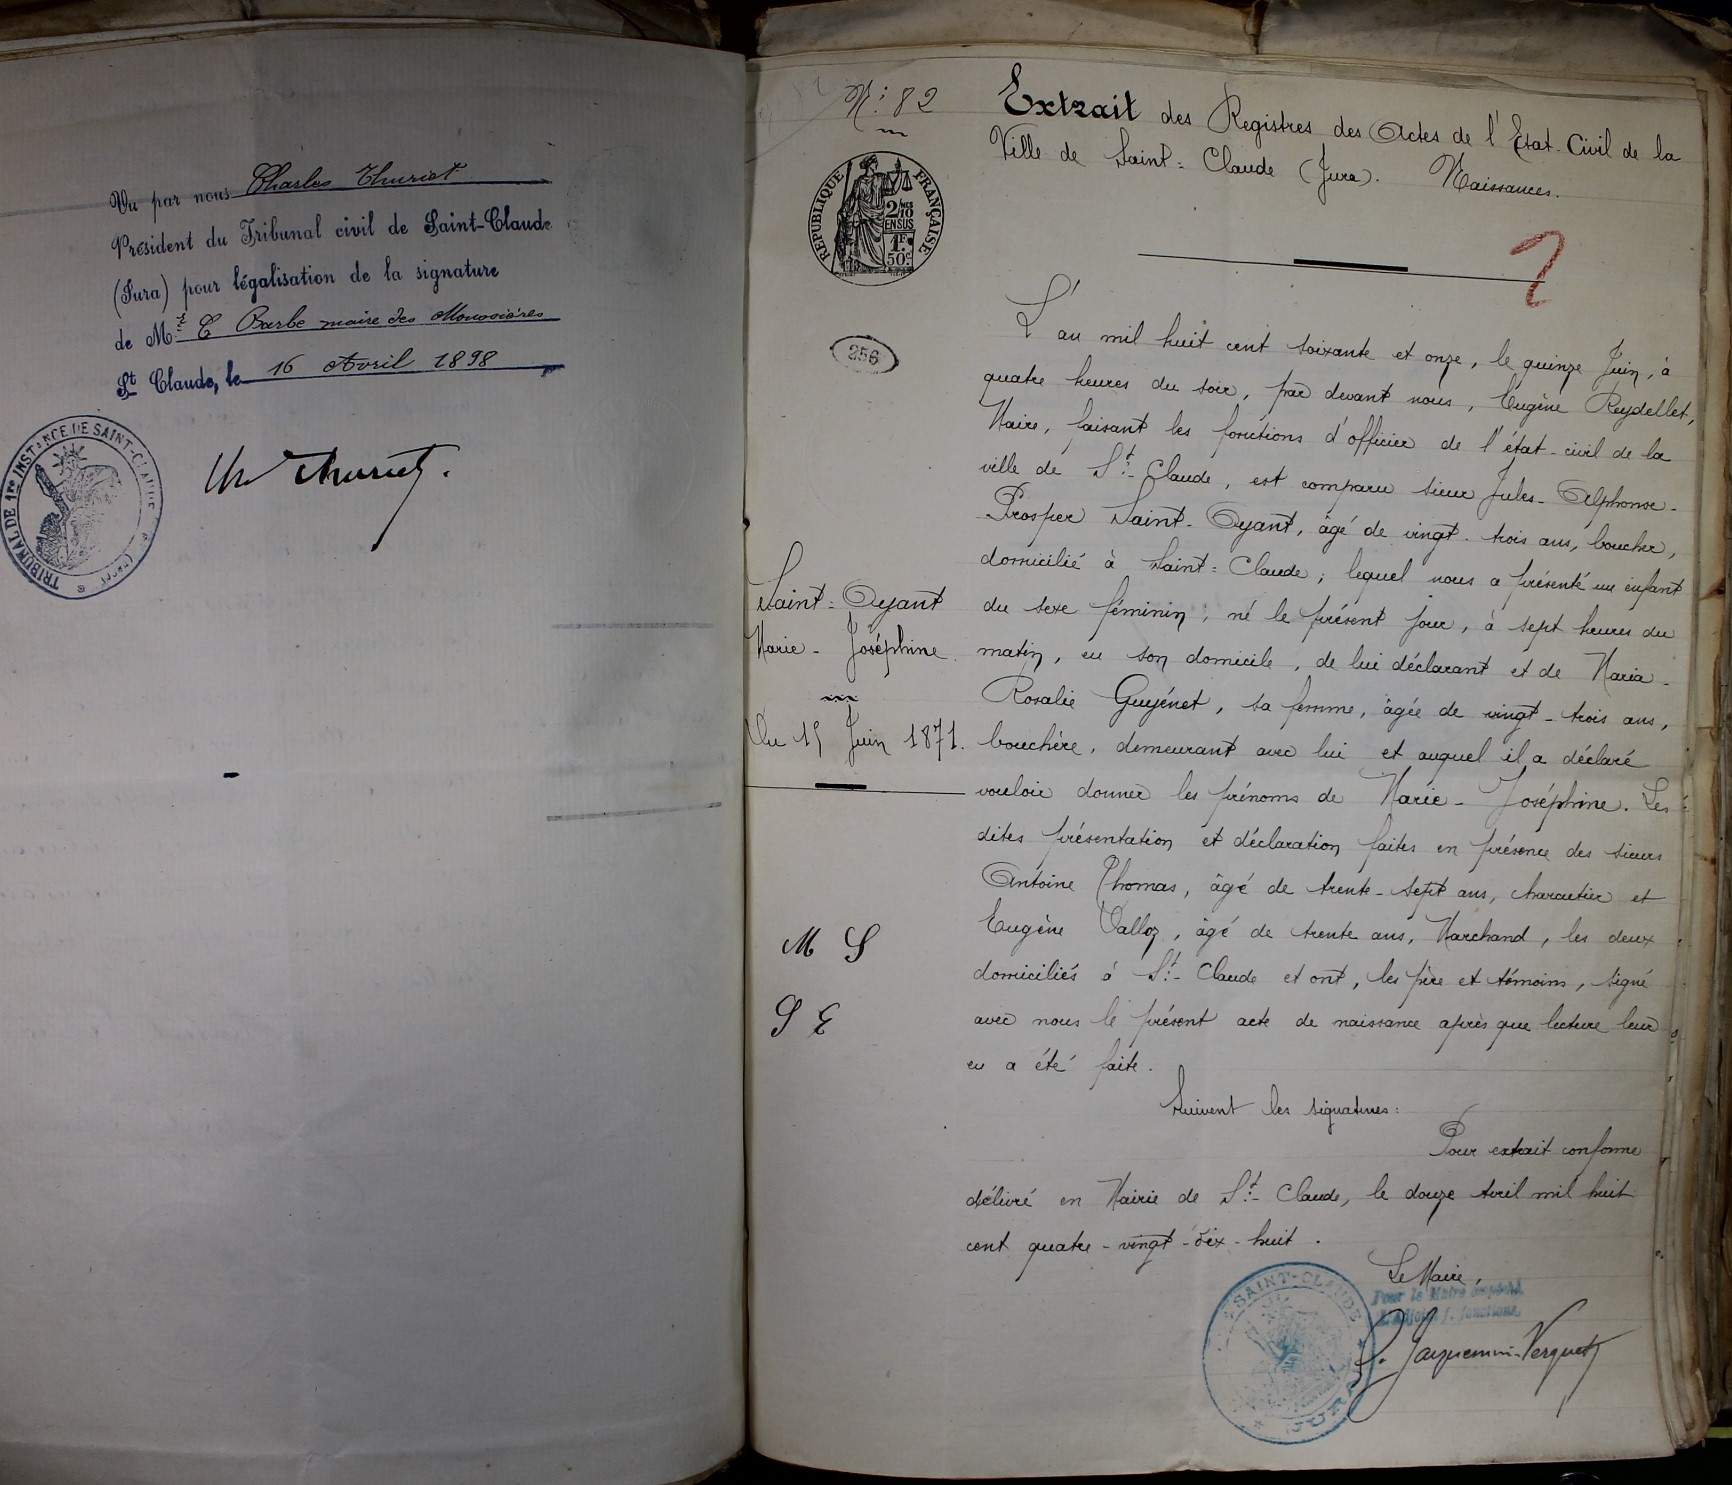 Vu par nous Charles Thuriet
Président du Tribunal civil de Saint-Claude
(Jura) pour légalisation de la signature
de Mr C Barbe maire des Moussières
St Claude, le 16 Avril 1898
TRIBUNAL DE 1re INSTANCE DE SAINT-CLAUDE
Ch Thuriet.
N: 82
REPUBLIQUE FRANÇAISE
2/10
EN SUS
1F.
50c.
256
Saint-Oyant
Marie-Joséphine
Du 15 Juin 1871.
M S
S E
Extrait des Registres des Actes de l'Etat-Civil de la
Ville de Saint-Claude (Jura). Naissances.
L'an mil huit cent soixante et onze, le quinze Juin, à
quatre heures du soir, par devant nous, Eugène Reydellet,
Maire, faisant les fonctions d'officier de l'état-civil de la
ville de St-Claude, est comparu sieur Jules-Alphonse-
Prosper Saint-Oyant, âgé de vingt-trois ans, boucher,
domicilié à Saint-Claude; lequel nous a présenté un enfant
du sexe féminin, né le présent jour, à sept heures du
matin, en son domicile, de lui déclarant et de Maria-
Rosalie Guyénet, sa femme, âgée de vingt-trois ans,
bouchère, demeurant avec lui et auquel il a déclaré
vouloir donner les prénoms de Marie-Joséphine. Les
dites présentation et déclaration faites en présence des sieurs
Antoine Thomas, âgé de trente-sept ans, charcutier et
Eugène Valloz, âgé de trente ans, Marchand, les deux
domiciliés à St-Claude et ont, les père et témoins, signé
avec nous le présent acte de naissance après que lecture leur
en a été faite.
Suivent les signatures:
Pour extrait conforme
délivré en Mairie de St-Claude, le douze Avril mil huit
cent quatre-vingt-dix-huit.
Le Maire,
Pour le Maire empêché,
L'Adjoint f. fonctions,
SAINT-CLAUDE
JURA
P. Jacquemin-Verguet